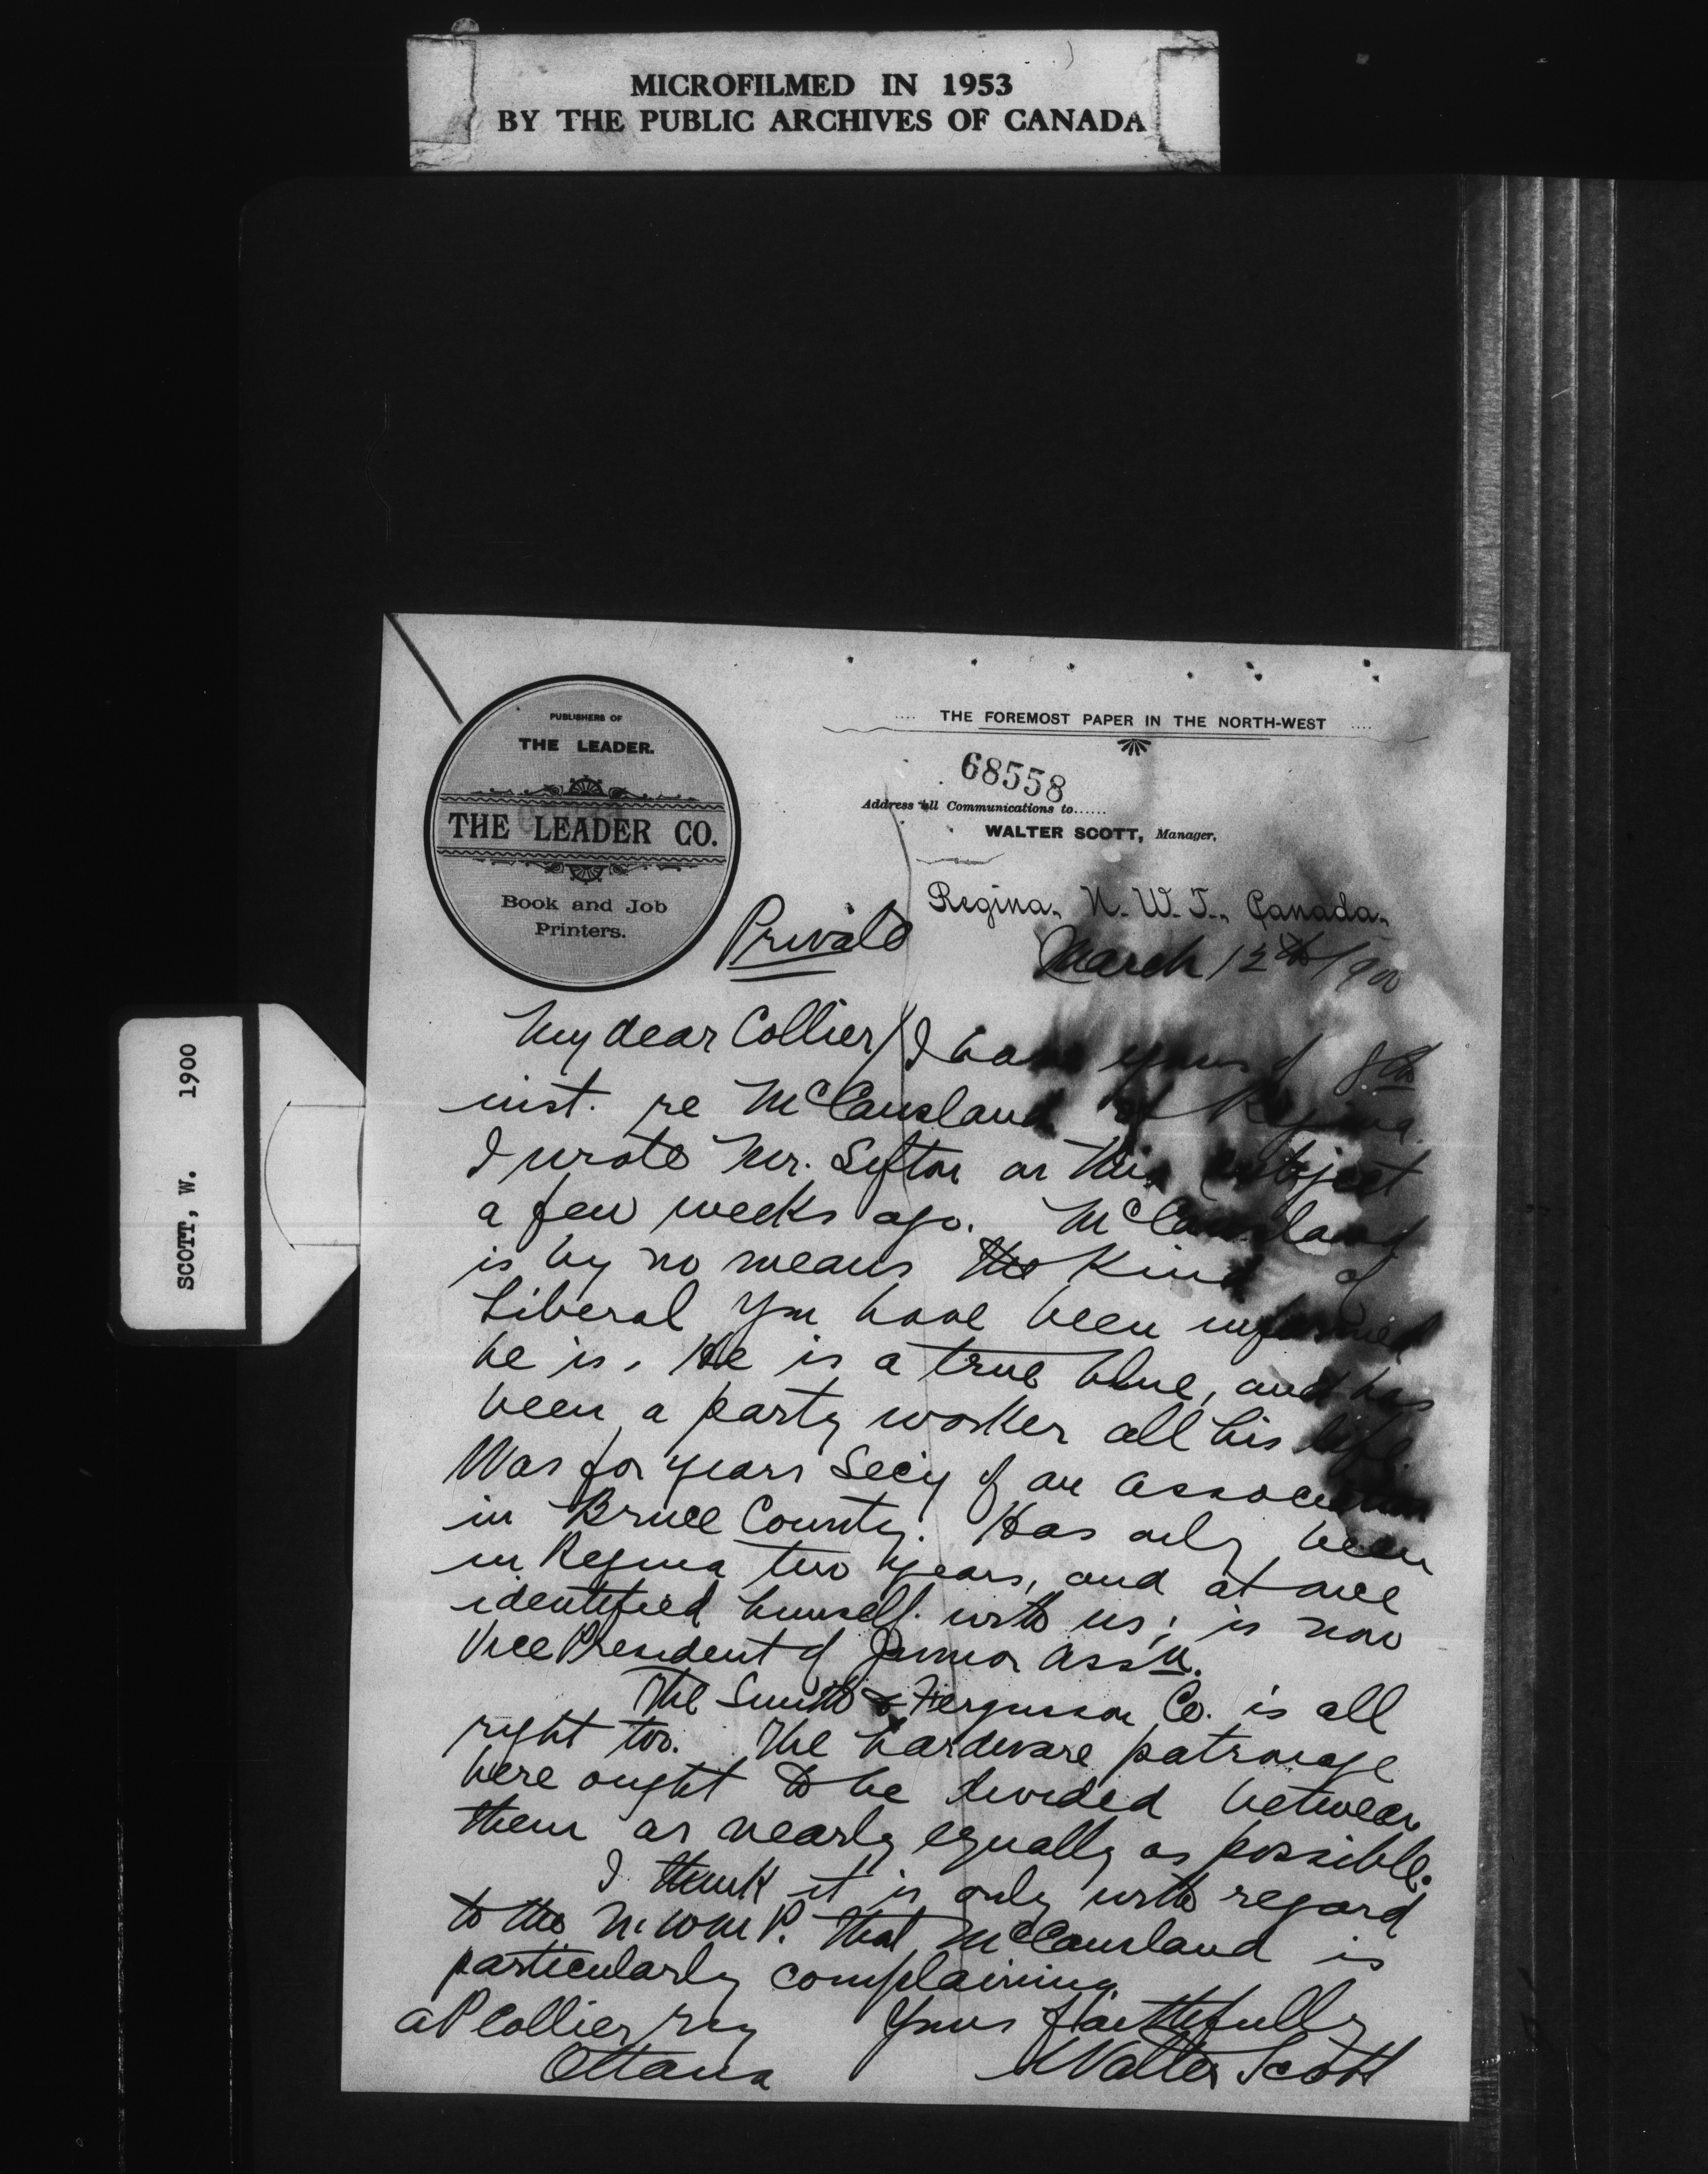 MICROFILMED IN 1953
BY THE PUBLIC ARCHIVES OF CANADA
SCOTT, W. 1900
PUBLISHERS OF
THE LEADER.
THE LEADER CO.
Book and Job
Printers.
.... THE FOREMOST PAPER IN THE NORTH-WEST ....
68558
Address all Communications to......
WALTER SCOTT, Manager.
Regina, N. W. T., Canada,
Private
March 12th 1900
My dear Collier / I have yours of 8th
inst. re McCausland of Regina.
I wrote Mr. Sifton on this subject
a few weeks ago. McCausland
is by no means the kind of
Liberal you have been informed
he is. He is a true blue, and has
been a party worker all his life.
Was for years Secy of an association
in Bruce County. Has only been
in Regina two years, and at once
identified himself with us; is now
Vice President of Junior Assn.
The Smith & Fergusson Co. is all
right too. The hardware patronage
here ought to be divided between
them as nearly equally as possible.
I think it is only with regard
to the N.W.M.P. that McCausland is
particularly complaining.
Yours faithfully
Walter Scott
A P Collier Esq
Ottawa